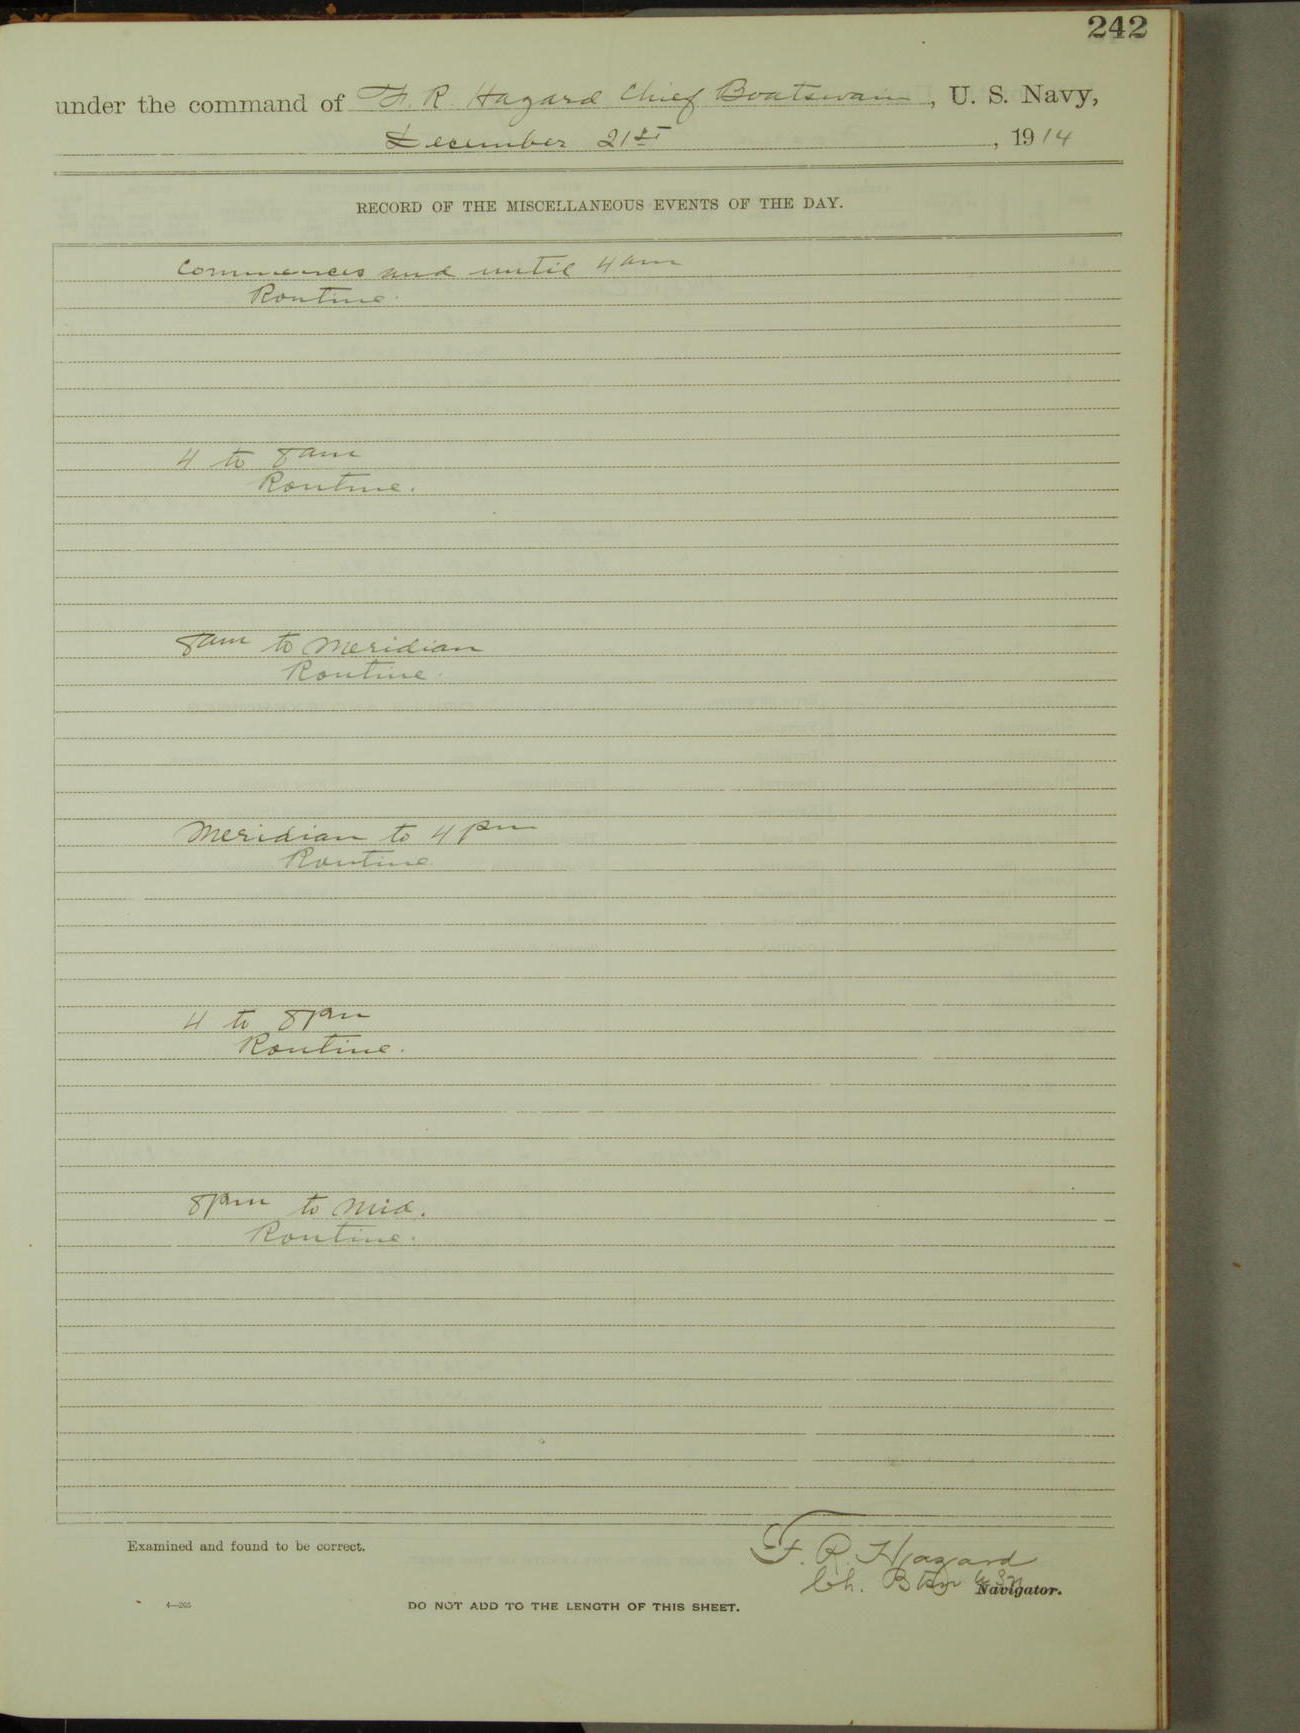 242
under the command of F. R. Hazard Chief Boatswain, U. S. Navy,
December 21st, 1914
RECORD OF THE MISCELLANEOUS EVENTS OF THE DAY.
Commences and until 4 am
Routine.
4 to 8 am
Routine.
8 am to Meridian
Routine.
Meridian to 4 pm
Routine.
4 to 8 pm
Routine.
8 pm to Mid.
Routine.
Examined and found to be correct.
F. R. Hazard
Ch. Btsn USN
Navigator.
4—265
DO NOT ADD TO THE LENGTH OF THIS SHEET.